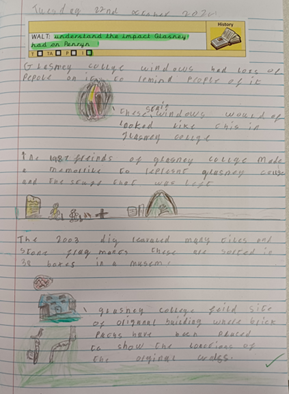 Tuesday 22nd October 2020
History
WALT: understand the impact Glasney
had on Penryn
Glasney college windows had lots of
People on it to remind People of it
seats
these windows would of
looked like this in
Glasney college
the friends of glasney college made
a to glasney
and the shape that was left
The 2003 dig many tiles and
stone these are sorted in
boxes in a museum.
glasney college field site
of original building where brick
Parts have been placed
to show the locations of
the original walls.